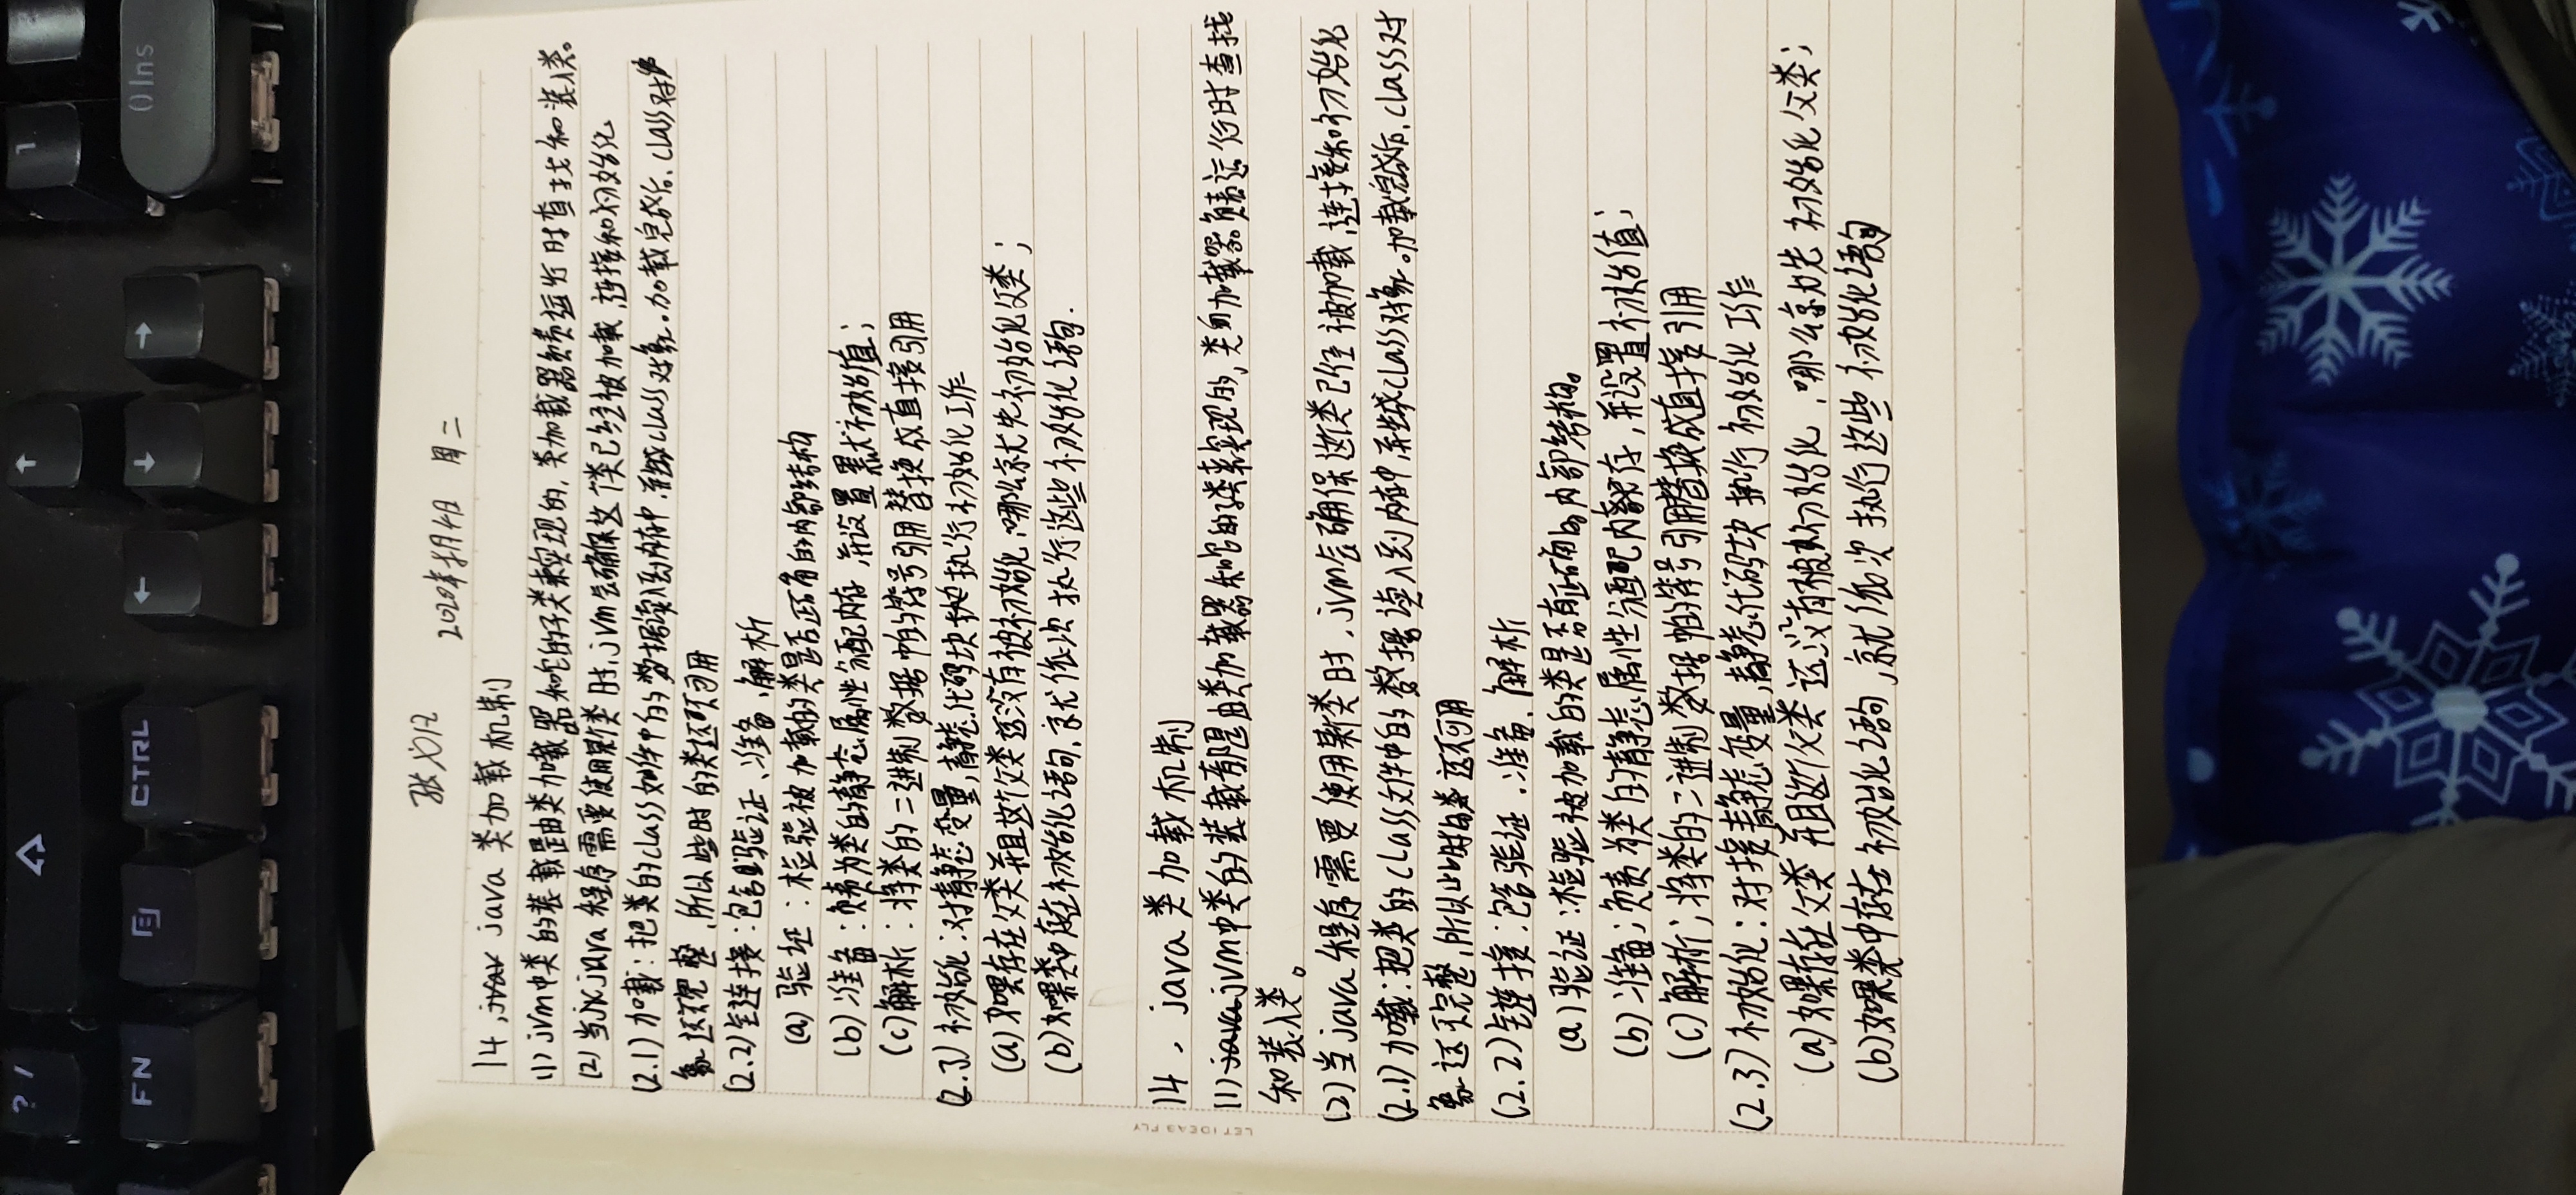 ? /
1
2
FN
CTRL
0 Ins
张
2020年8月4日 周二
14, java 类加载机制
(1) jvm中类的装载是由类加载器和它的子类来实现的,类加载器负责运行时查找和装入类。
(2) 当java程序需要使用某个类时,jvm会确保这个类已经被加载、连接和初始化
(2.1) 加载:把类的class文件中的数据读入到内存中,并生成class对象。加载完成后,class对
象还不完整,所以些时的类还不可用
(2.2)链连接:包含验证、准备、解析
(a) 验证:检验被加载的类是否正确的内部结构
(b) 准备:负责为类的静态属性分配内存,并设置默认初始值;
(c)解析:将类的二进制数据中的符号引用替换成直接引用
(2.3) 初始化:对静态变量,静态代码块执行初始化工作
(a) 如果存在父类并且这个父类还没有被初始化,哪么就先初始化父类;
(b) 如果类中存在初始化语句,就依次执行这些初始化语句.
LET IDEAS FLY
14, java 类加载机制
(1) jvm中类的装载都是由类加载器和它的子类来实现的,类加载器负责运行时查找
和装入类。
(2) 当java程序需要使用某个类时,jvm会确保这个类已经被加载、连接和初始化
(2.1) 加载:把类的class文件中的数据读入到内存中,并生成class对象。加载完成后,class对
象还不完整,所以此时的类还不可用
(2.2)链接:包含验证、准备、解析
(a)验证:检验被加载的类是否有正确的内部结构。
(b) 准备;负责为类的静态属性分配内存,并设置初始值;
(c) 解析;将类的二进制数据中的符号引用替换成直接引用
(2.3) 初始化:对接静态变量,静态代码块执行初始化工作
(a) 如果存在父类并且这个父类还没有被初始化,哪么就先初始化父类;
(b)如果类中存在初始化语句,就依次执行这些初始化语句